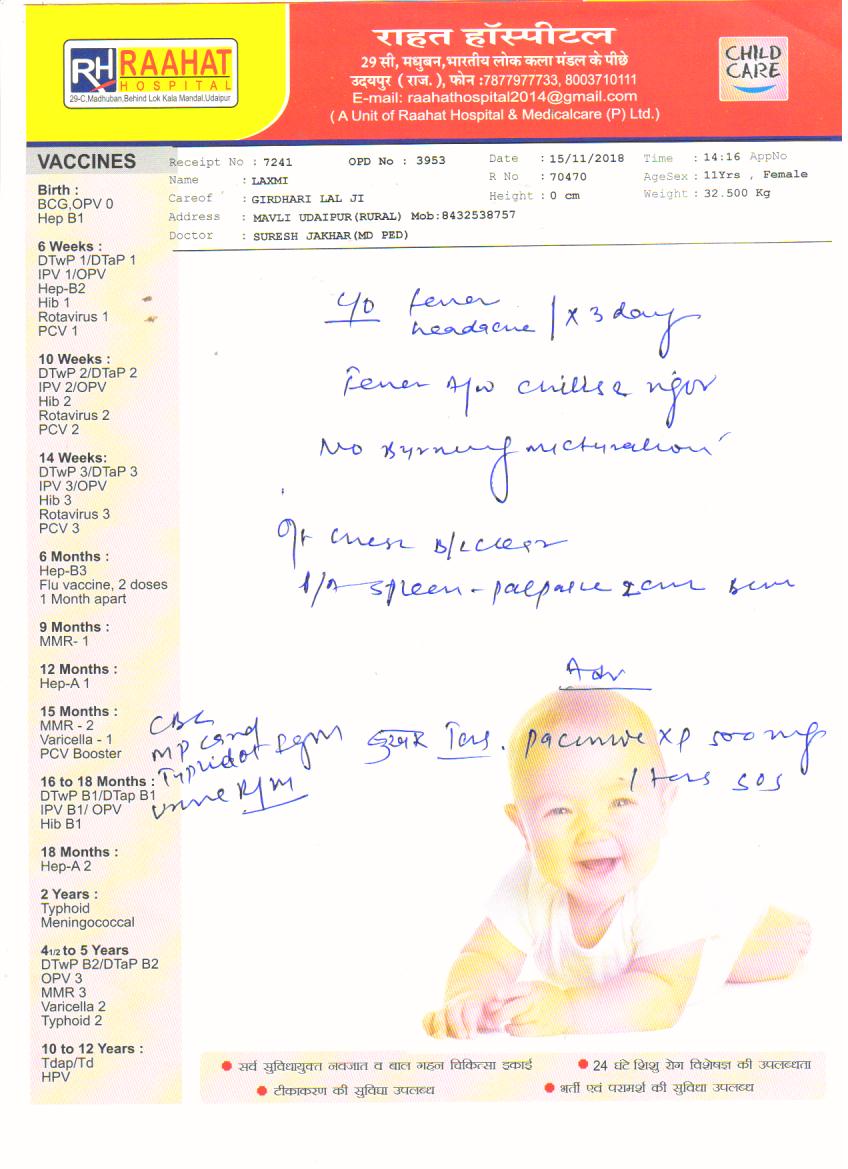 RH RAAHAT
HOSPITAL
29-C,Madhuban,Behind Lok Kala Mandal,Udaipur
राहत हॉस्पीटल
29 सी, मधुबन,भारतीय लोक कला मंडल के पीछे
उदयपुर ( राज. ), फोन :7877977733, 8003710111
E-mail: raahathospital2014@gmail.com
( A Unit of Raahat Hospital & Medicalcare (P) Ltd.)
CHILD
CARE
Receipt No : 7241 OPD No : 3953 Date : 15/11/2018 Time : 14:16 AppNo
Name : LAXMI R No : 70470 AgeSex : 11Yrs , Female
Careof : GIRDHARI LAL JI Height : 0 cm Weight : 32.500 Kg
Address : MAVLI UDAIPUR(RURAL) Mob:8432538757
Doctor : SURESH JAKHAR(MD PED)
VACCINES
Birth :
BCG,OPV 0
Hep B1
6 Weeks :
DTwP 1/DTaP 1
IPV 1/OPV
Hep-B2
Hib 1
Rotavirus 1
PCV 1
10 Weeks :
DTwP 2/DTaP 2
IPV 2/OPV
Hib 2
Rotavirus 2
PCV 2
14 Weeks:
DTwP 3/DTaP 3
IPV 3/OPV
Hib 3
Rotavirus 3
PCV 3
6 Months :
Hep-B3
Flu vaccine, 2 doses
1 Month apart
9 Months :
MMR- 1
12 Months :
Hep-A 1
15 Months :
MMR - 2
Varicella - 1
PCV Booster
16 to 18 Months :
DTwP B1/DTap B1
IPV B1/ OPV
Hib B1
18 Months :
Hep-A 2
2 Years :
Typhoid
Meningococcal
4 1/2 to 5 Years
DTwP B2/DTaP B2
OPV 3
MMR 3
Varicella 2
Typhoid 2
10 to 12 Years :
Tdap/Td
HPV
C/O fever
headache / x 3 day
Fever A/w chills & rigor
No Burning micturation
O/E chest B/L clear
P/A - Spleen - palpable 2cm
Adv
CBC
MP card
Typhidot IgM
Urine R/M
बुखार Tab. XP 500 mg
1 tab SOS
सर्व सुविधायुक्त नवजात व बाल गहन चिकित्सा इकाई
24 घंटे शिशु रोग विशेषज्ञ की उपलब्धता
टीकाकरण की सुविधा उपलब्ध
भर्ती एवं परामर्श की सुविधा उपलब्ध